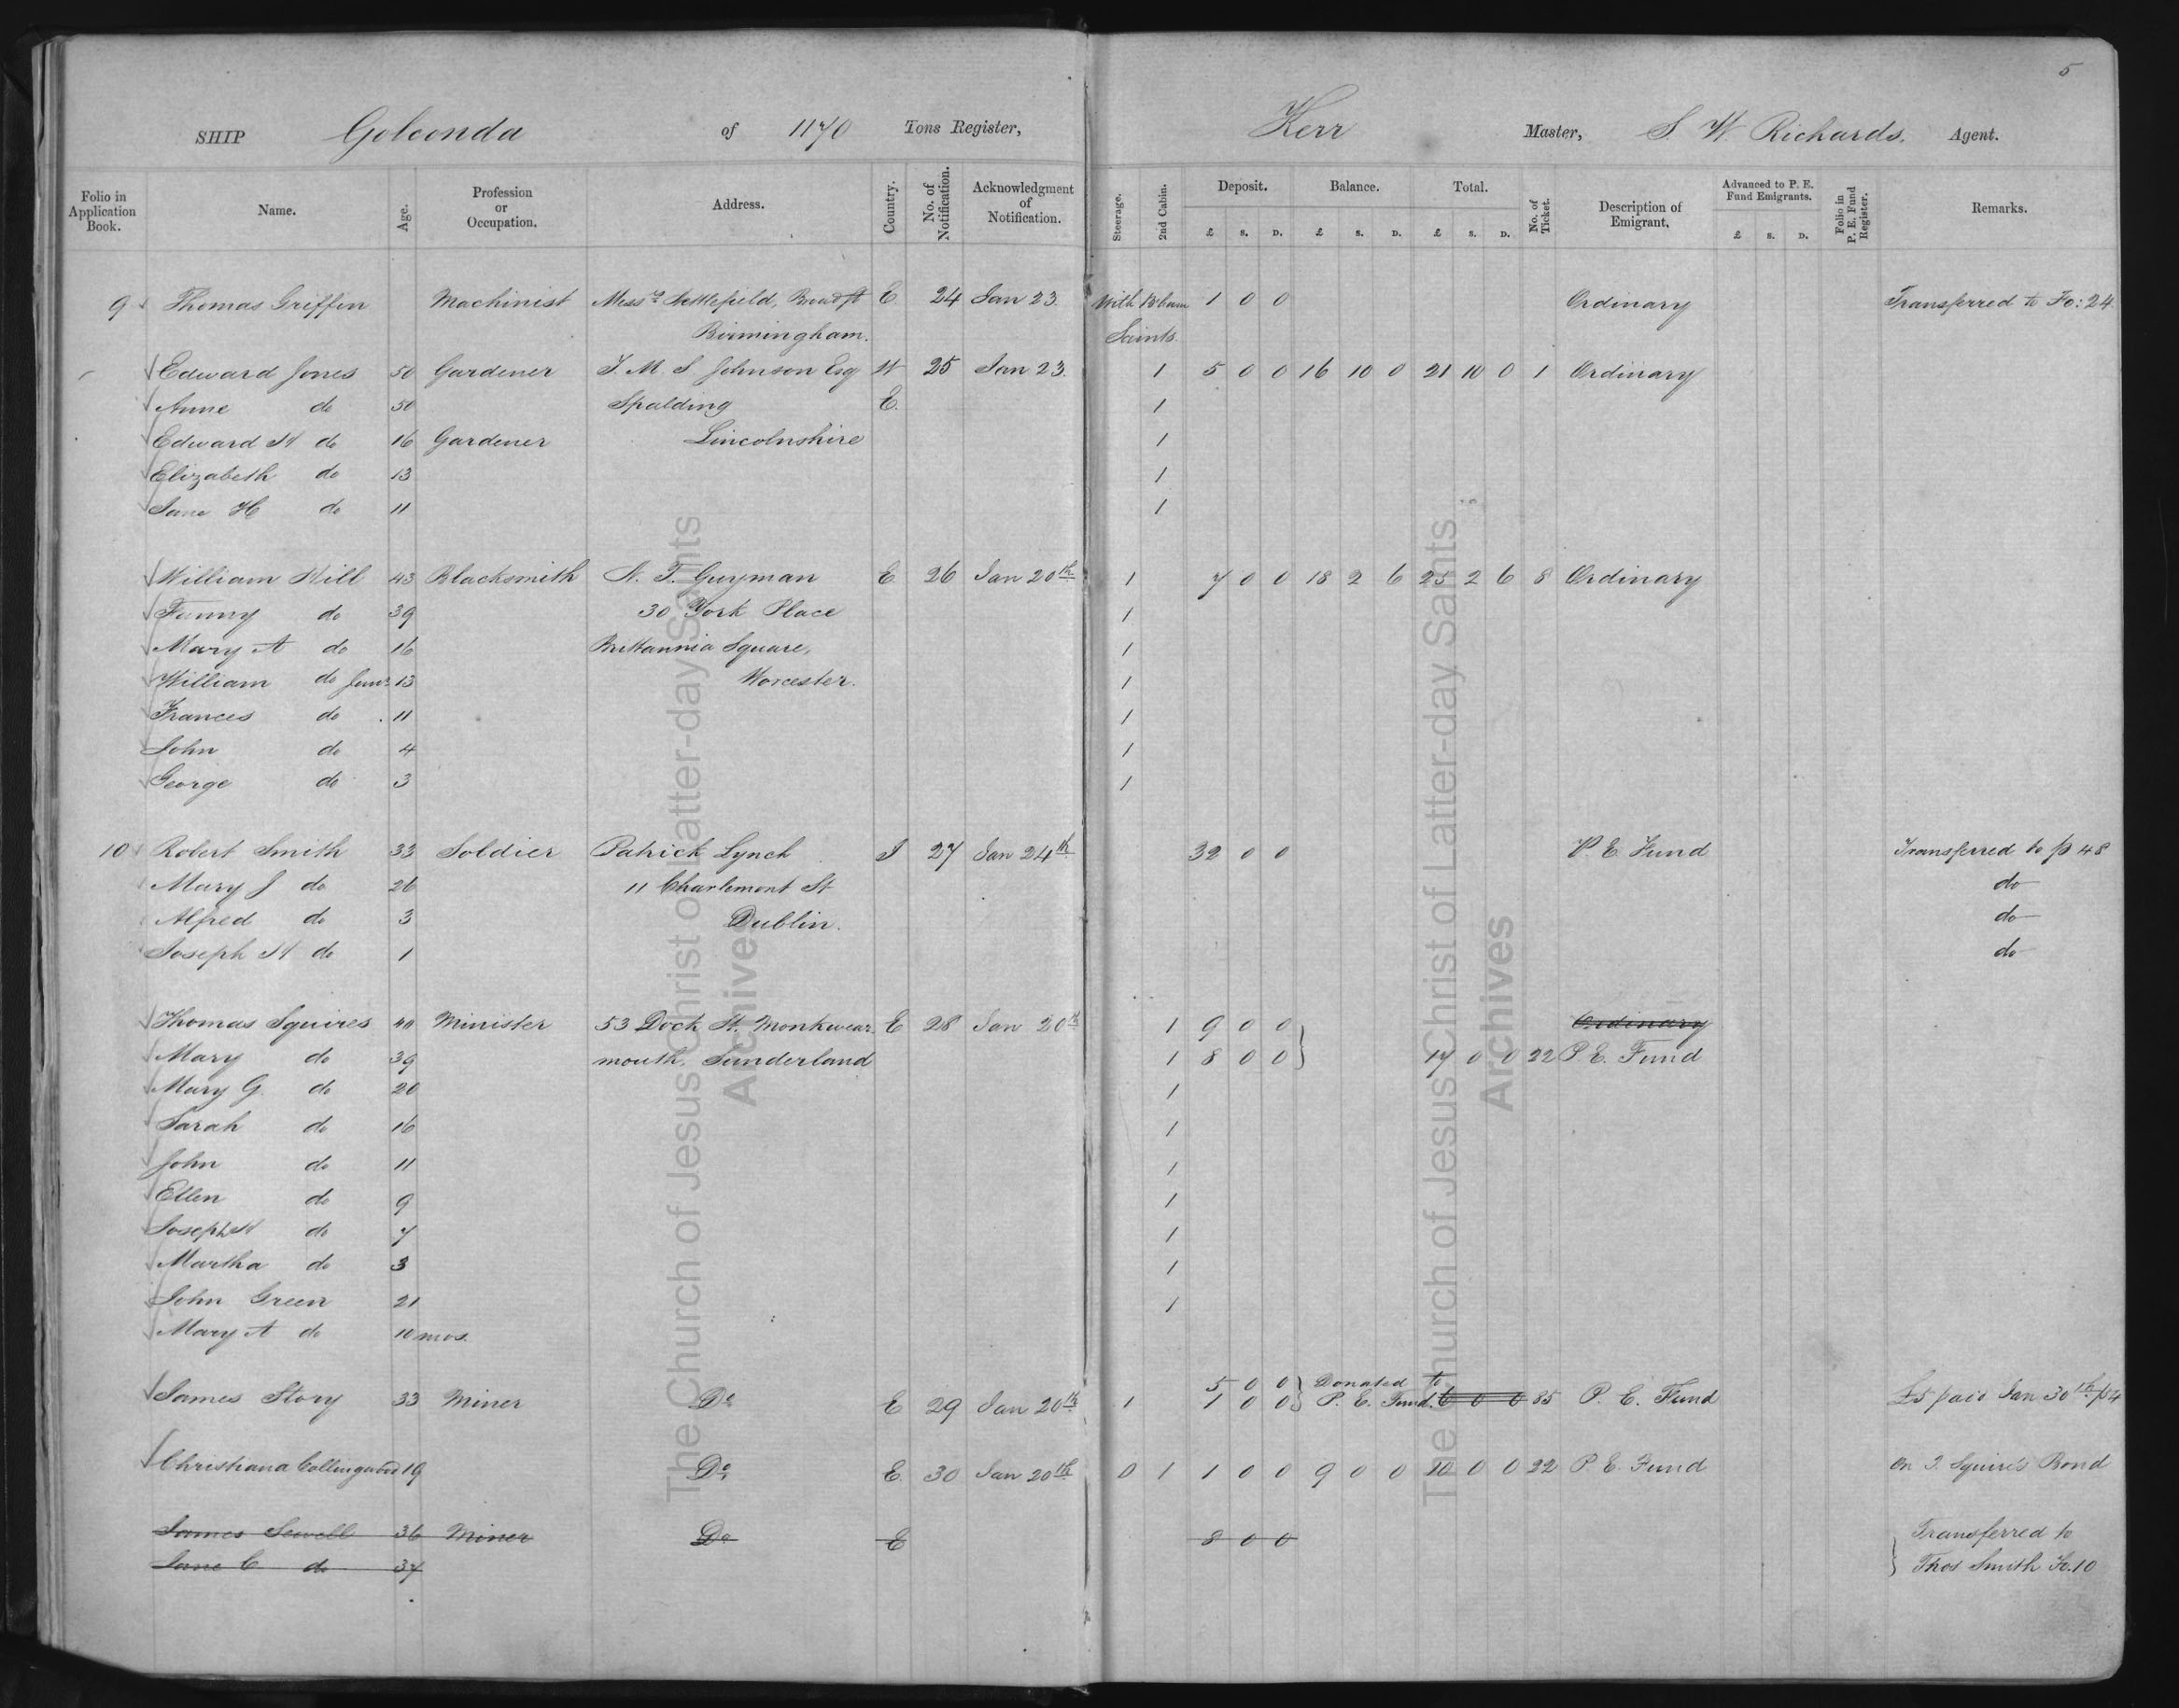 5
SHIP Golconda of 1170 Tons Register, Kerr Master, S. W. Richards, Agent.
Folio in Application Book. Name. Age. Profession or Occupation. Address. Country. No. of Notification. Acknowledgment of Notification. Steerage. 2nd Cabin. Deposit. £ s. D. Balance. £ s. D. Total. £ s. D. No. of Ticket. Description of Emigrant. Advanced to P. E. Fund Emigrants. £ s. D. Folio in P. E. Fund Register. Remarks.
9 Thomas Griffin Machinist Messrs Nettlefield, Broad St E 24 Jan 23. With B'ham 1 0 0 Ordinary Transferred to Fo: 24
Birmingham. Saints.
Edward Jones 50 Gardener T. M. S. Johnson Esq W 25 Jan 23. 1 5 0 0 16 10 0 21 10 0 1 Ordinary
Anne do 50 Spalding E. 1
Edward W do 16 Gardener Lincolnshire 1
Elizabeth do 13 1
Jane H do 11 1
William Hill 43 Blacksmith N. T. Guyman E 26 Jan 20th 1 7 0 0 18 2 6 25 2 6 8 Ordinary
Fanny do 39 30 York Place 1
Mary A do 16 Brittannia Square, 1
William do Junr 13 Worcester. 1
Frances do 11 1
John do 4 1
George do 3 1
10 Robert Smith 33 Soldier Patrick Lynch I 27 Jan 24th 32 0 0 P. E. Fund Transferred to p 48
Mary J do 26 11 Charlemont St do
Alfred do 3 Dublin. do
Joseph W do 1 do
Thomas Squires 40 Minister 53 Dock St. Monkwear E 28 Jan 20th 1 9 0 0 Ordinary
Mary do 39 mouth, Sunderland 1 8 0 0 17 0 0 22 P. E. Fund
Mary G. do 20 1
Sarah do 16 1
John do 11 1
Ellen do 9 1
Joseph W do 7 1
Martha do 3 1
John Green 21 1
Mary A do 10 mos.
5 0 0 Donated to
James Story 33 Miner Do E 29 Jan 20th 1 1 0 0 P. E. Fund. 6 0 0 85 P. E. Fund £5 paid Jan 30th p 4
Christiana Collingwood 19 Do E. 30 Jan 20th 0 1 1 0 0 9 0 0 10 0 0 22 P. E. Fund On T. Squires Bond
James Sewell 36 Miner Do E 8 0 0 Transferred to
Jane C do 37 Thos Smith Fo. 10
The Church of Jesus Christ of Latter-day Saints
Archives
The Church of Jesus Christ of Latter-day Saints
Archives